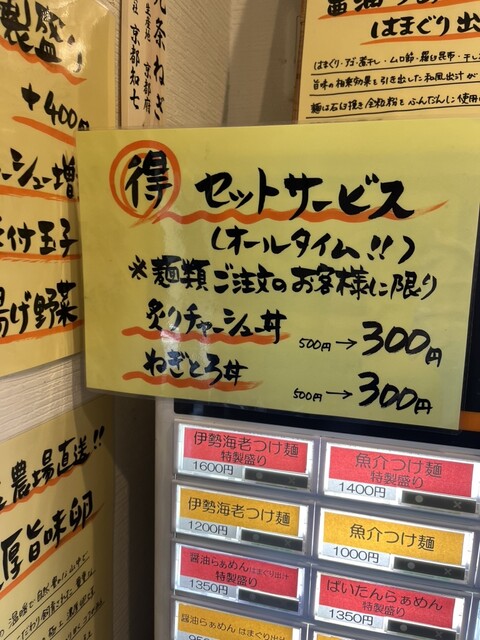 製盛り
+400円
チャーシュー増
味付玉子
揚げ野菜
九条ねぎ
生産地 京都府
会社 京都知七
はまぐり出
はまぐり・アゴ・煮干し・ムロ節・羅臼昆布・干し
旨味の相乗効果を引き出した和風出汁が
麺は石臼挽き全粒粉をふんだんに使用
得 セットサービス
(オールタイム!!)
※麺類ご注文のお客様に限り
炙りチャーシュー丼 500円→300円
ねぎとろ丼 500円→300円
農場直送!!
厚旨味卵
伊勢海老つけ麺
特製盛り
1600円
魚介つけ麺
特製盛り
1400円
伊勢海老つけ麺
1200円
魚介つけ麺
1000円
醤油らぁめん はまぐり出汁
特製盛り
1350円
ぱいたんらぁめん
特製盛り
1350円
醤油らぁめん はまぐり出汁
らぁめん